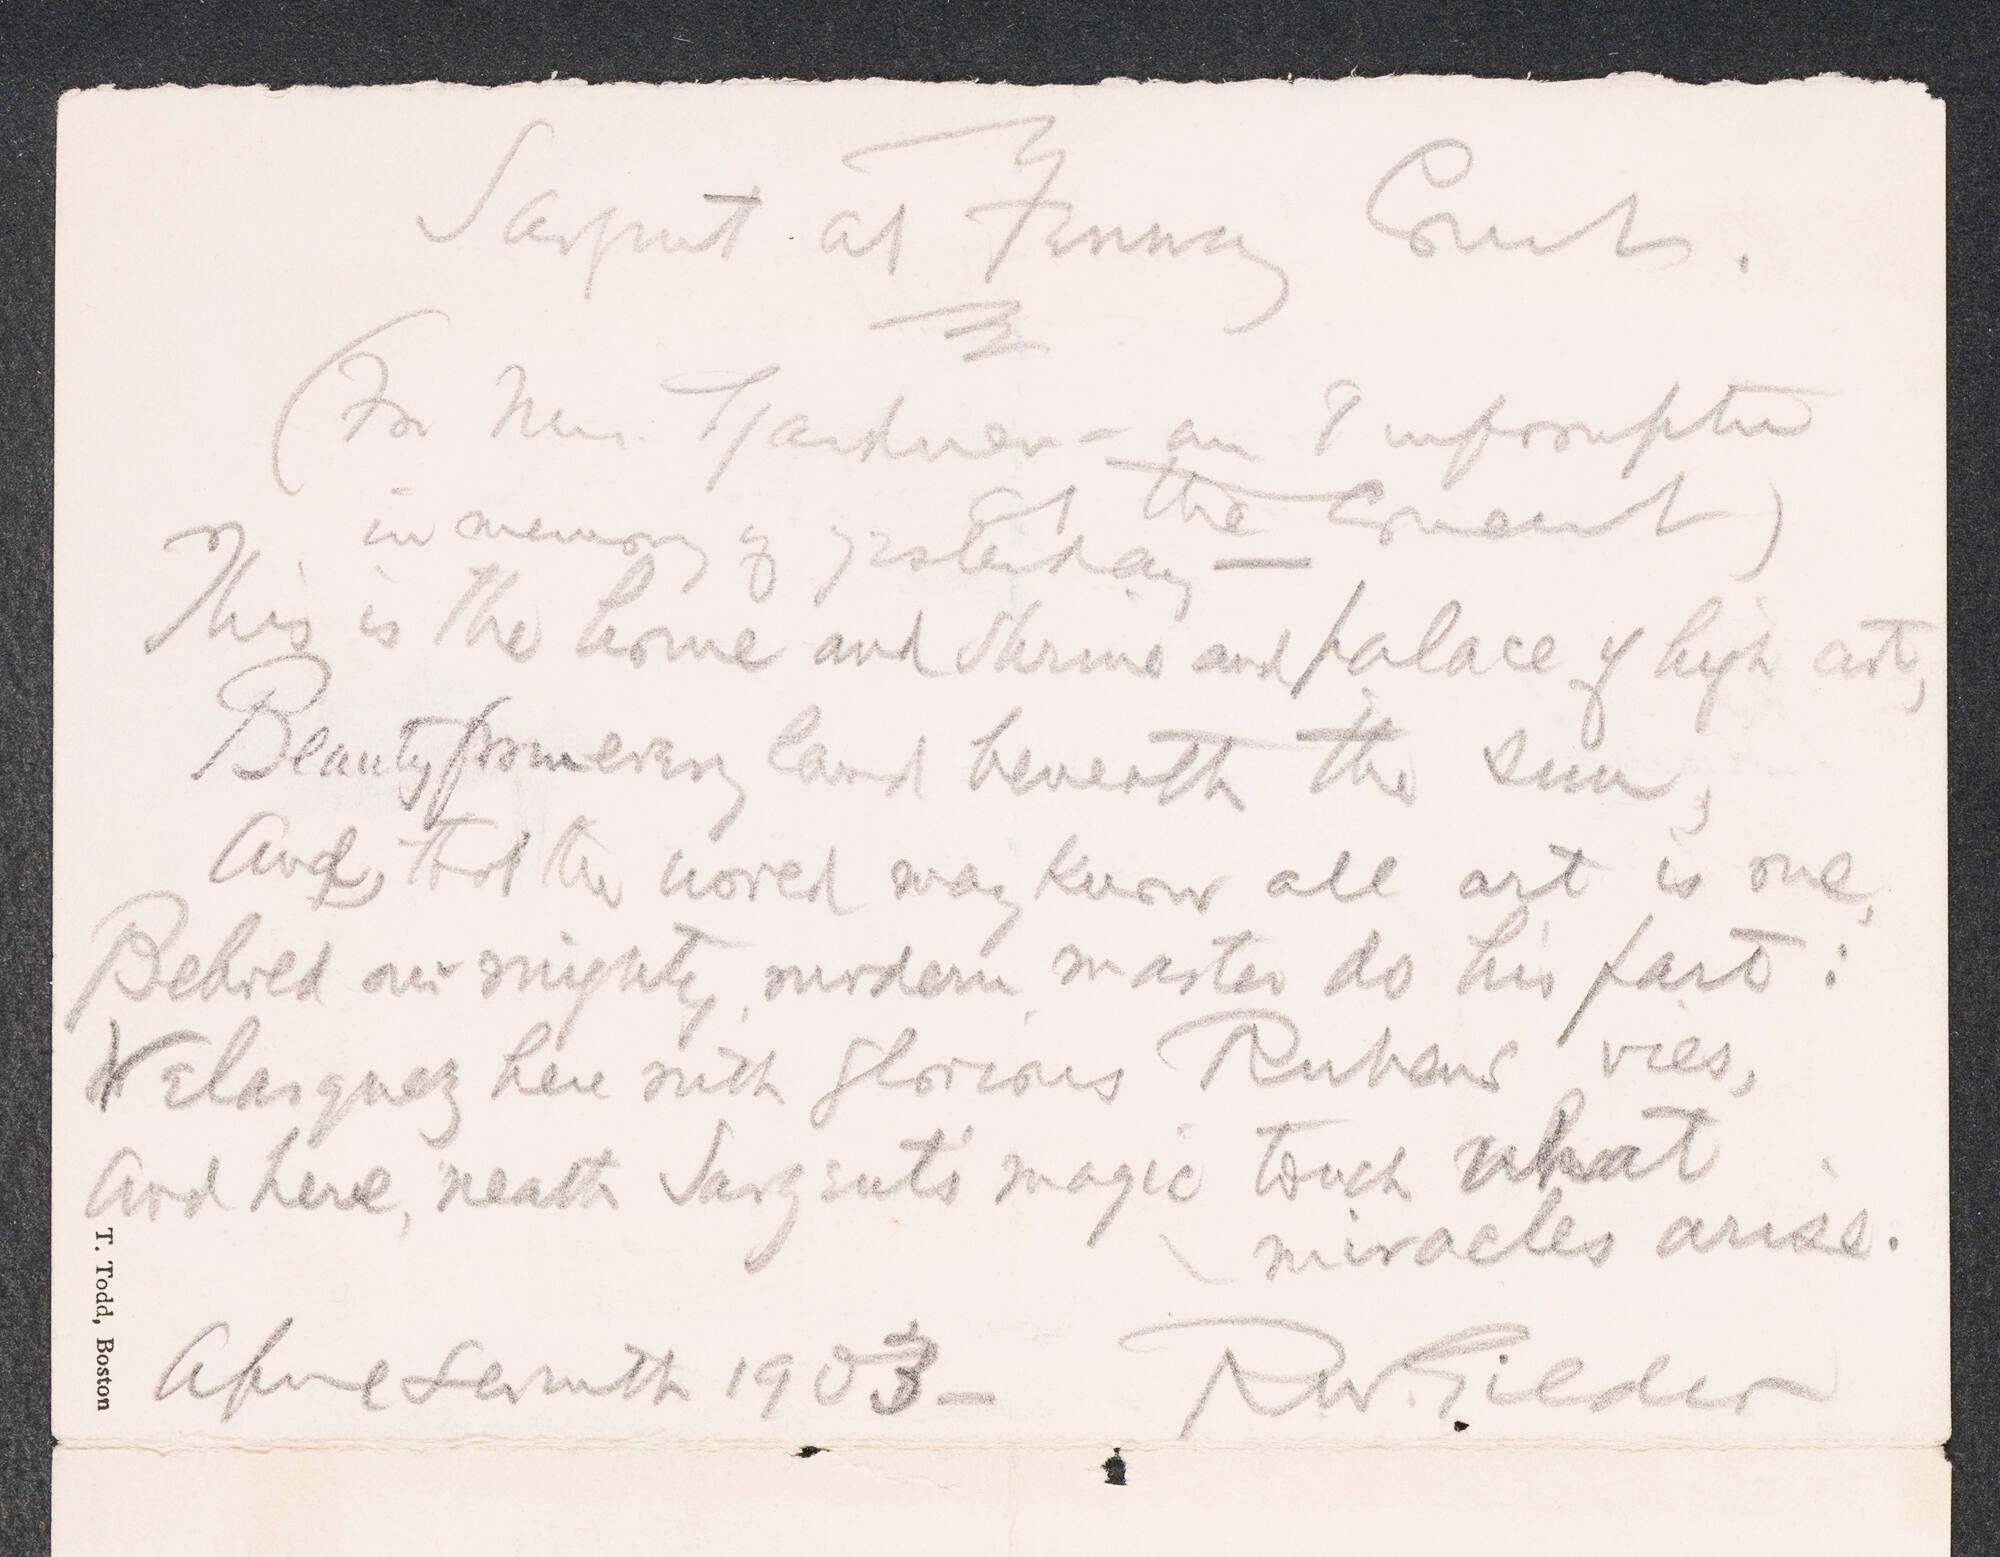 Sargent at Fenway Court.
(For Mrs. Gardner - an Impromptu
in memory of yesterday — the Concert)
This is the home and shrine and palace of high art,
Beauty from every land beneath the sun,
And, that the world may know all art is one,
Behold our mighty, modern master do his part:
Velasquez here with glorious Rubens vies,
And here, 'neath Sargent's magic touch what
miracles arise.
April Seventh 1903 —
R. W. Gilder
T. Todd, Boston